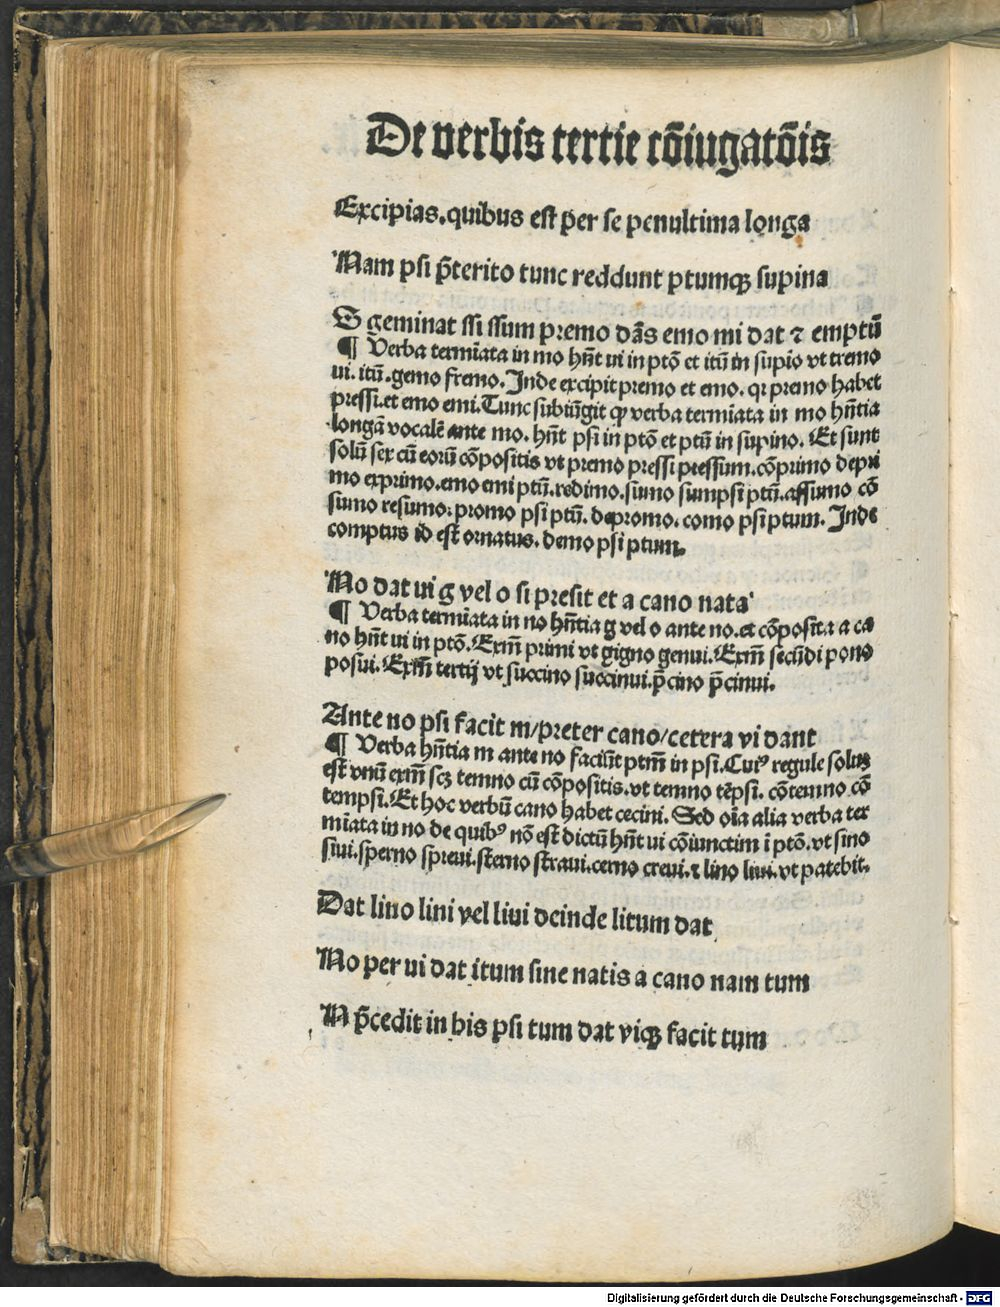 De verbis tertie cōiugatōis
Excipias.quibus est per se penultima longa
Nam psi p̄terito tunc reddunt ptumqꝫ supina
S geminat ssi ssum premo dās emo mi dat ⁊ emptū
¶ Verba termīata in mo hn̄t ui in ptō et itū in supio vt tremo
ui. itū.gemo fremo. Inde excipit premo et emo. qꝛ premo habet
pressi.et emo emi.Tunc subiūgit ꝙ verba termīata in mo hn̄tia
longā vocalē ante mo. hn̄t psi in ptō et ptū in supino. Et sunt
solū sex cū eorū cōpositis vt premo pressi pressum.cōprimo depri
mo exprimo.emo emi ptū.redimo.sumo sumpsi ptū.assumo cō
sumo resumo.promo psi ptū. depromo. como psi ptum. Inde
comptus id est ornatus. demo psi ptum.
No dat ui g vel o si presit et a cano nata
¶ Verba termīata in no hn̄tia g vel o ante no.et cōposita a ca
no hn̄t ui in ptō. Exm̄ primi vt gigno genui. Exm̄ secūdi pono
posui. Exm̄ tertij vt succino succinui.p̄cino p̄cinui.
Ante no psi facit m/preter cano/cetera vi dant
¶ Verba hn̄tia m ante no faciūt ptm̄ in psi.Cuiꝰ regule solus
est vnū exm̄ scꝫ temno cū cōpositis.vt temno tēpsi. cōtemno cō
tempsi. Et hoc verbū cano habet cecini. Sed oīa alia verba ter
mīata in no de quibꝰ nō est dictū hn̄t ui cōiunctim ī ptō.vt sino
siui.sperno spreui.sterno straui.cerno creui.⁊ lino liui.vt patebit.
Dat lino lini vel liui deinde litum dat
No per ui dat itum sine natis a cano nam tum
N p̄cedit in his psi tum dat viqꝫ facit tum
Digitalisierung gefördert durch die Deutsche Forschungsgemeinschaft - DFG